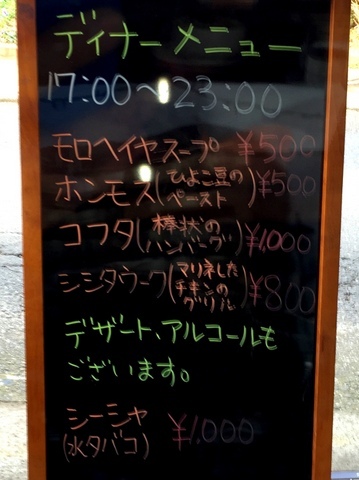 ディナーメニュー
17:00～23:00
モロヘイヤスープ ¥500
ホンモス(ひよこ豆のペースト) ¥500
コフタ(棒状のハンバーグ) ¥1,000
シシタウーク(マリネしたチキンのグリル) ¥800
デザート、アルコールも
ございます。
シーシャ
(水タバコ) ¥1,000